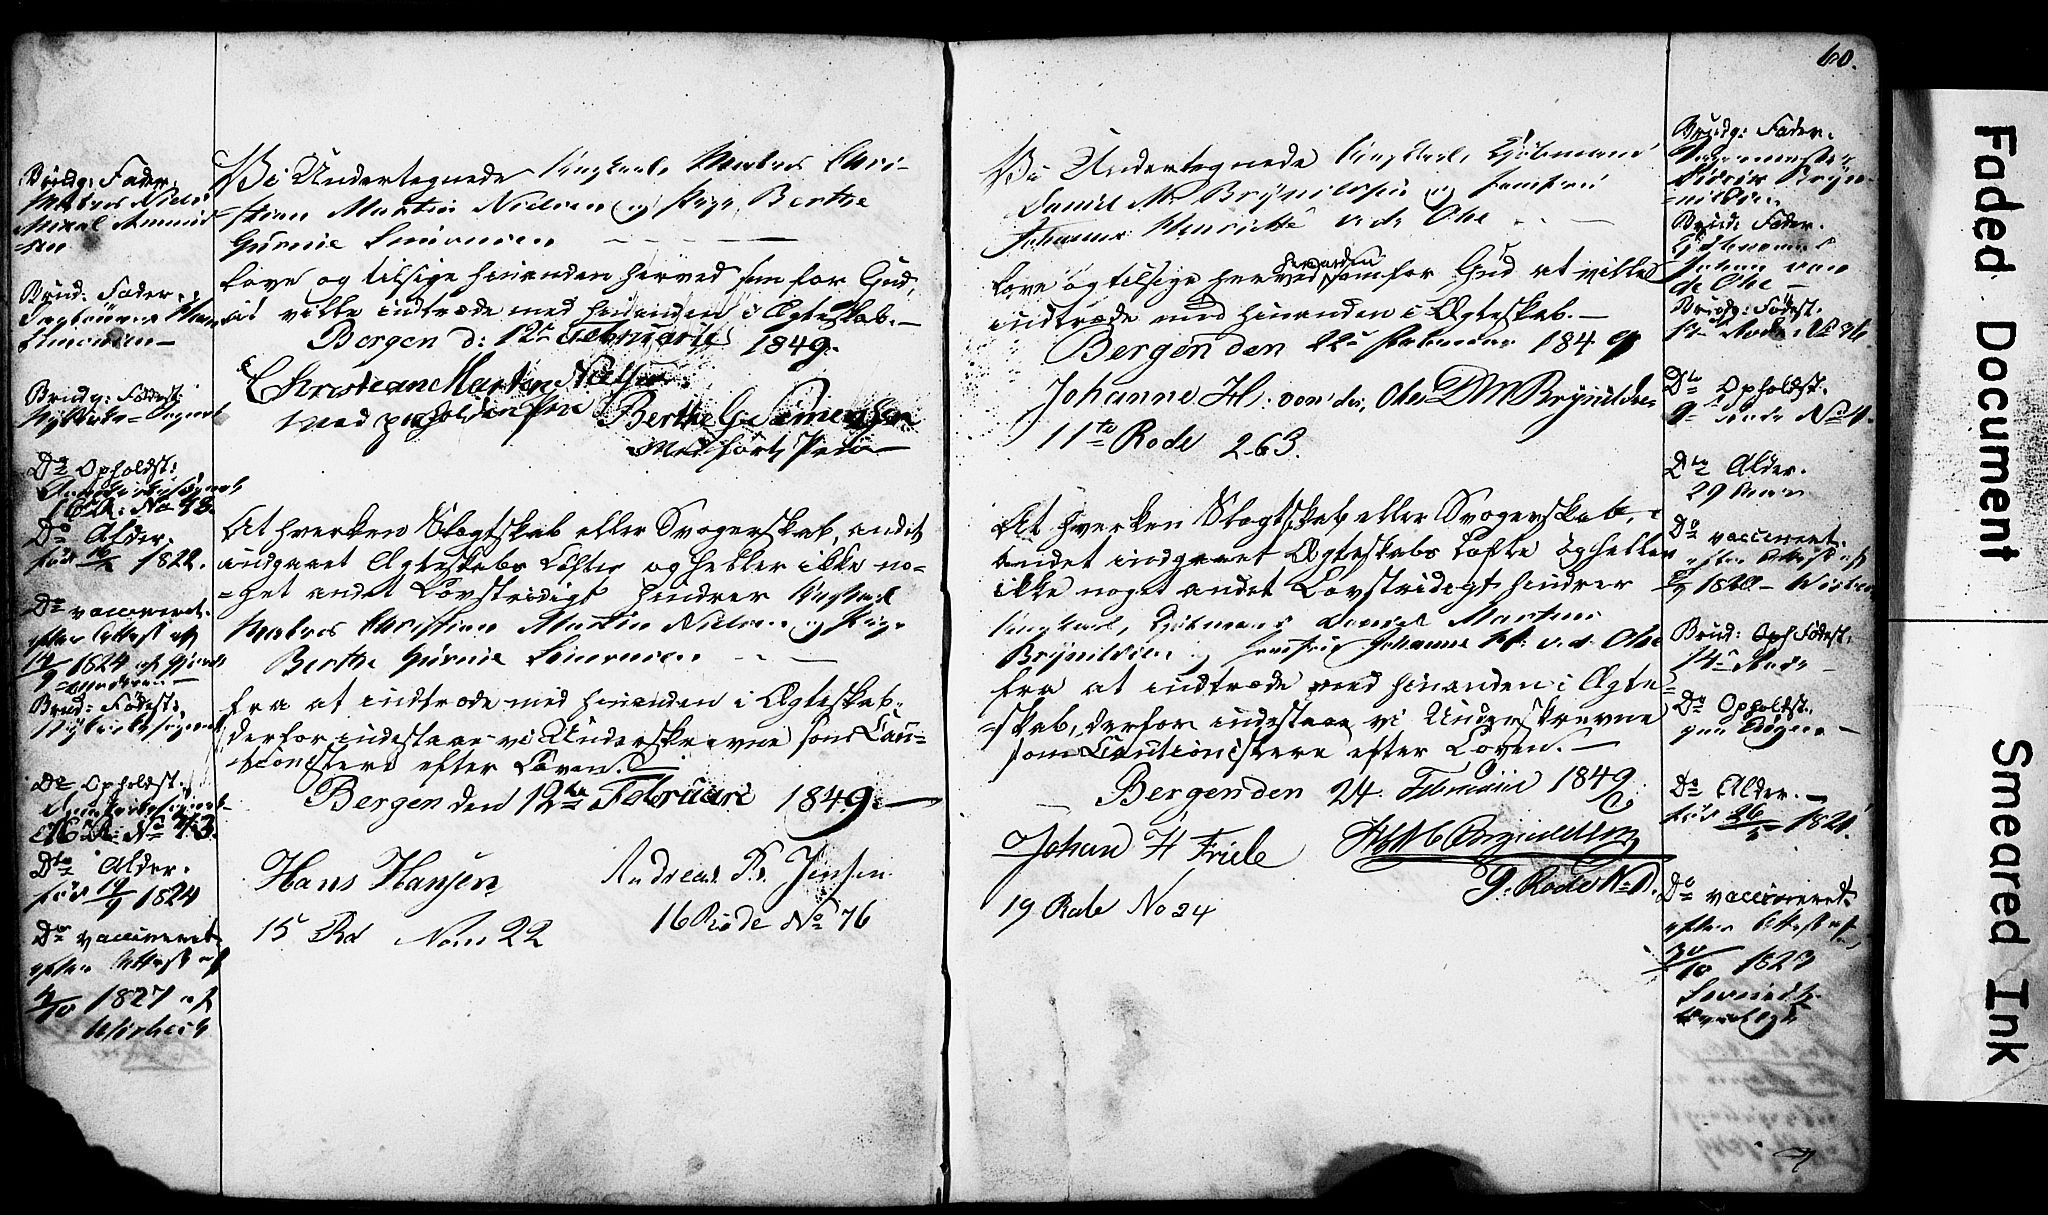 Brudg: Fader.
Matros Niels
Mikal Amund
sen
Brud: Fader.
Simonsen
Brudg: Fødest:
Nykirke-Sognet
Do Opholdst:
16 R: No 43.
Do Alder.
født 16/2 1822.
Do vaccineret.
efter Attest af
14/9 1824 af
Brud: Fødest:
Nykirkesognet
Do Opholdst:
Nykirkesognet
16 R: No 43.
Dto Alder.
født 19/9 1824
Do vaccineret.
efter Attest af
4/10 1827 af
Wisbech
Vi Undertegnede Ungkarl Matros Chri-
stian Martin Nielsen og Pige Berthe
Gurine Simonsen
love og tilsige hinanden herved som for Gud,
at ville indtræde med hinanden i Ægteskab.
Bergen d: 12te Februarii 1849.
Christian Marton Nielsen
med paaholden Pen Berthe G. Simensen
med ført Pen
At hverken Slegtskab eller Svogerskab, andet
indgaaet Ægteskabs Løfte og heller ikke no-
get andet Lovstridigt hindrer Ungkarl
Matros Christian Martin Nielsen og Pige
Berthe Gurine Simonsen
fra at indtræde med hinanden i Ægteskab,
derfor indestaae vi Underskrevne som Cau-
tionistere efter Loven.
Bergen den 12te Februari 1849.
Hans Hansen Andreas Jensen
15 Rd Nom 22 16 Rode No 76
60.
Vi Undertegnede Ungkarl, Kjøbmand
Daniel M. Brynildsen og Jomfru
Johanne Henriette v. d. Ohe
love og tilsige herved hinanden som for Gud at ville
indtræde med hinanden i Ægteskab.
Bergen den 22de Februar 1849
Johanne H. von der Ohe DM Brynildsen
11te Rode 263.
At hverken Slegtskab eller Svogerskab,
andet indgaaet Ægteskabs Løfte og heller
ikke noget andet Lovstridigt hindrer
Ungkarl, Kjøbmand Daniel Martin
Brynildsen og Jomfru Johanne H. v. d. Ohe
fra at indtræde med hinanden i Ægte-
skab, derfor indestaae vi Underskrevne
som Cautionistere efter Loven.
Bergen den 24. Februar 1849
Johan H Friele Brynildsen
19 Rode No 24 9. Rode No 1.
Brudg: Fader.
Bryn-
nildsen
Brud: Fader.
Kjøbmand
Johan von
de Ohe
Brudg: Fødest.
Rode No 36
Dto Opholdst.
9de Rode No 1.
Dto Alder.
29 Aar
Do vaccineret.
efter Attest af
1820 - Wisbech
Brud: Fødest.
14de Rode
Do Opholdst.
Do Alder.
født 26/5 1821.
Do vaccineret.
efter Attest af
30/10 1823
Faded Document
Smeared Ink